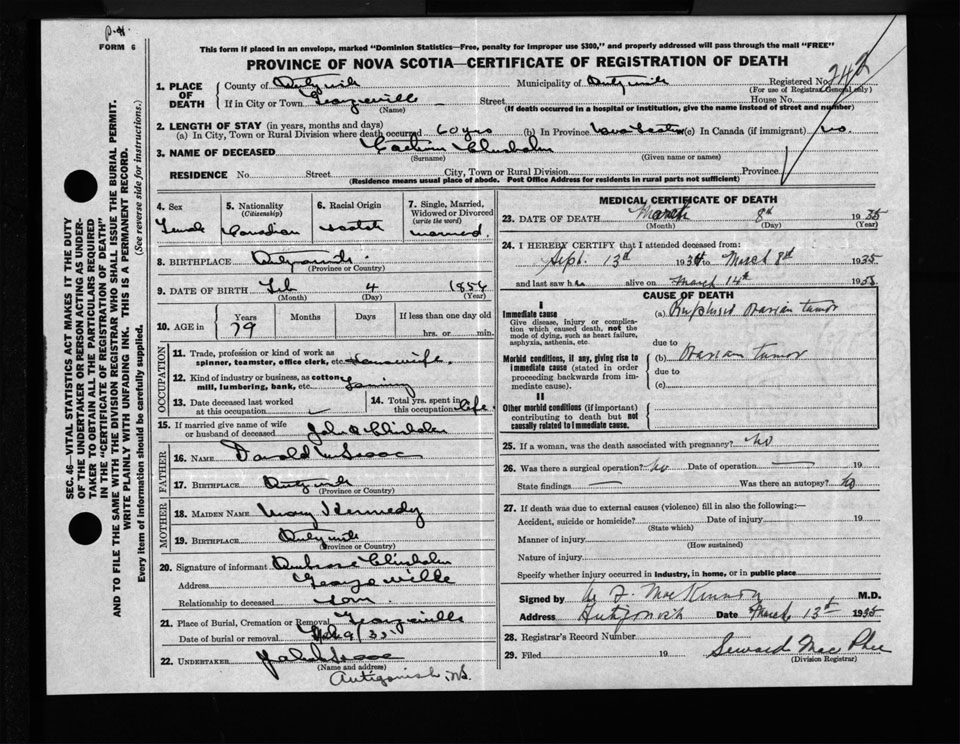 FORM 6
This form if placed in an envelope, marked "Dominion Statistics—Free, penalty for improper use $300," and properly addressed will pass through the mail "FREE"
PROVINCE OF NOVA SCOTIA—CERTIFICATE OF REGISTRATION OF DEATH
1. PLACE OF DEATH
County of Antigonish Municipality of Antigonish Registered No. 242
(For use of Registrar General only)
If in City or Town Georgeville Street House No.
(Name) (If death occurred in a hospital or institution, give the name instead of street and number)
2. LENGTH OF STAY (in years, months and days)
(a) In City, Town or Rural Division where death occurred 60 yrs (b) In Province Nova Scotia (c) In Canada (if immigrant) no.
3. NAME OF DECEASED Chisholm
(Surname) (Given name or names)
RESIDENCE No. Street City, Town or Rural Division Province
(Residence means usual place of abode. Post Office Address for residents in rural parts not sufficient)
4. Sex
Female
5. Nationality
(Citizenship)
Canadian
6. Racial Origin
Scotch
7. Single, Married, Widowed or Divorced
(write the word)
married.
8. BIRTHPLACE Antigonish
(Province or Country)
9. DATE OF BIRTH Feb 4 1856
(Month) (Day) (Year)
10. AGE in
Years Months Days If less than one day old
79 hrs. or min.
OCCUPATION
11. Trade, profession or kind of work as spinner, teamster, office clerk, etc. Housewife.
12. Kind of industry or business, as cotton mill, lumbering, bank, etc. Farming
13. Date deceased last worked at this occupation
14. Total yrs. spent in this occupation life.
15. If married give name of wife or husband of deceased John A Chisholm
FATHER
16. NAME Donald McIsaac
17. BIRTHPLACE Antigonish
(Province or Country)
MOTHER
18. MAIDEN NAME Mary Kennedy
19. BIRTHPLACE Antigonish
(Province or Country)
20. Signature of informant Ambrose Chisholm
Address Georgeville
Relationship to deceased son
21. Place of Burial, Cremation or Removal Georgeville
Date of burial or removal 9/35
22. UNDERTAKER
(Name and address)
Antigonish, N.S.
MEDICAL CERTIFICATE OF DEATH
23. DATE OF DEATH March 8th 1935
(Month) (Day) (Year)
24. I HEREBY CERTIFY that I attended deceased from:
Sept. 13th 1934 to March 8th 1935
and last saw h er alive on March 14th 1935
CAUSE OF DEATH
I
Immediate cause
Give disease, injury or complication which caused death, not the mode of dying, such as heart failure, asphyxia, asthenia, etc.
(a) Ovarian tumor
due to
Morbid conditions, if any, giving rise to immediate cause (stated in order proceeding backwards from immediate cause).
(b) Ovarian tumor
due to
(c)
II
Other morbid conditions (if important) contributing to death but not causally related to immediate cause.
25. If a woman, was the death associated with pregnancy? no
26. Was there a surgical operation? no Date of operation — 19
State findings — Was there an autopsy? no
27. If death was due to external causes (violence) fill in also the following:—
Accident, suicide or homicide? Date of injury 19
(State which)
Manner of injury
(How sustained)
Nature of injury
Specify whether injury occurred in industry, in home, or in public place
Signed by MacKinnon M.D.
Address Antigonish Date March 13th 1935
28. Registrar's Record Number
29. Filed 19 Seward MacPhee
(Division Registrar)
SEC. 46—VITAL STATISTICS ACT MAKES IT THE DUTY
OF THE UNDERTAKER OR PERSON ACTING AS UNDERTAKER TO OBTAIN ALL THE PARTICULARS REQUIRED
IN THE "CERTIFICATE OF REGISTRATION OF DEATH"
AND TO FILE THE SAME WITH THE DIVISION REGISTRAR WHO SHALL ISSUE THE BURIAL PERMIT.
WRITE PLAINLY WITH UNFADING INK. THIS IS A PERMANENT RECORD.
Every item of information should be carefully supplied. (See reverse side for instructions.)